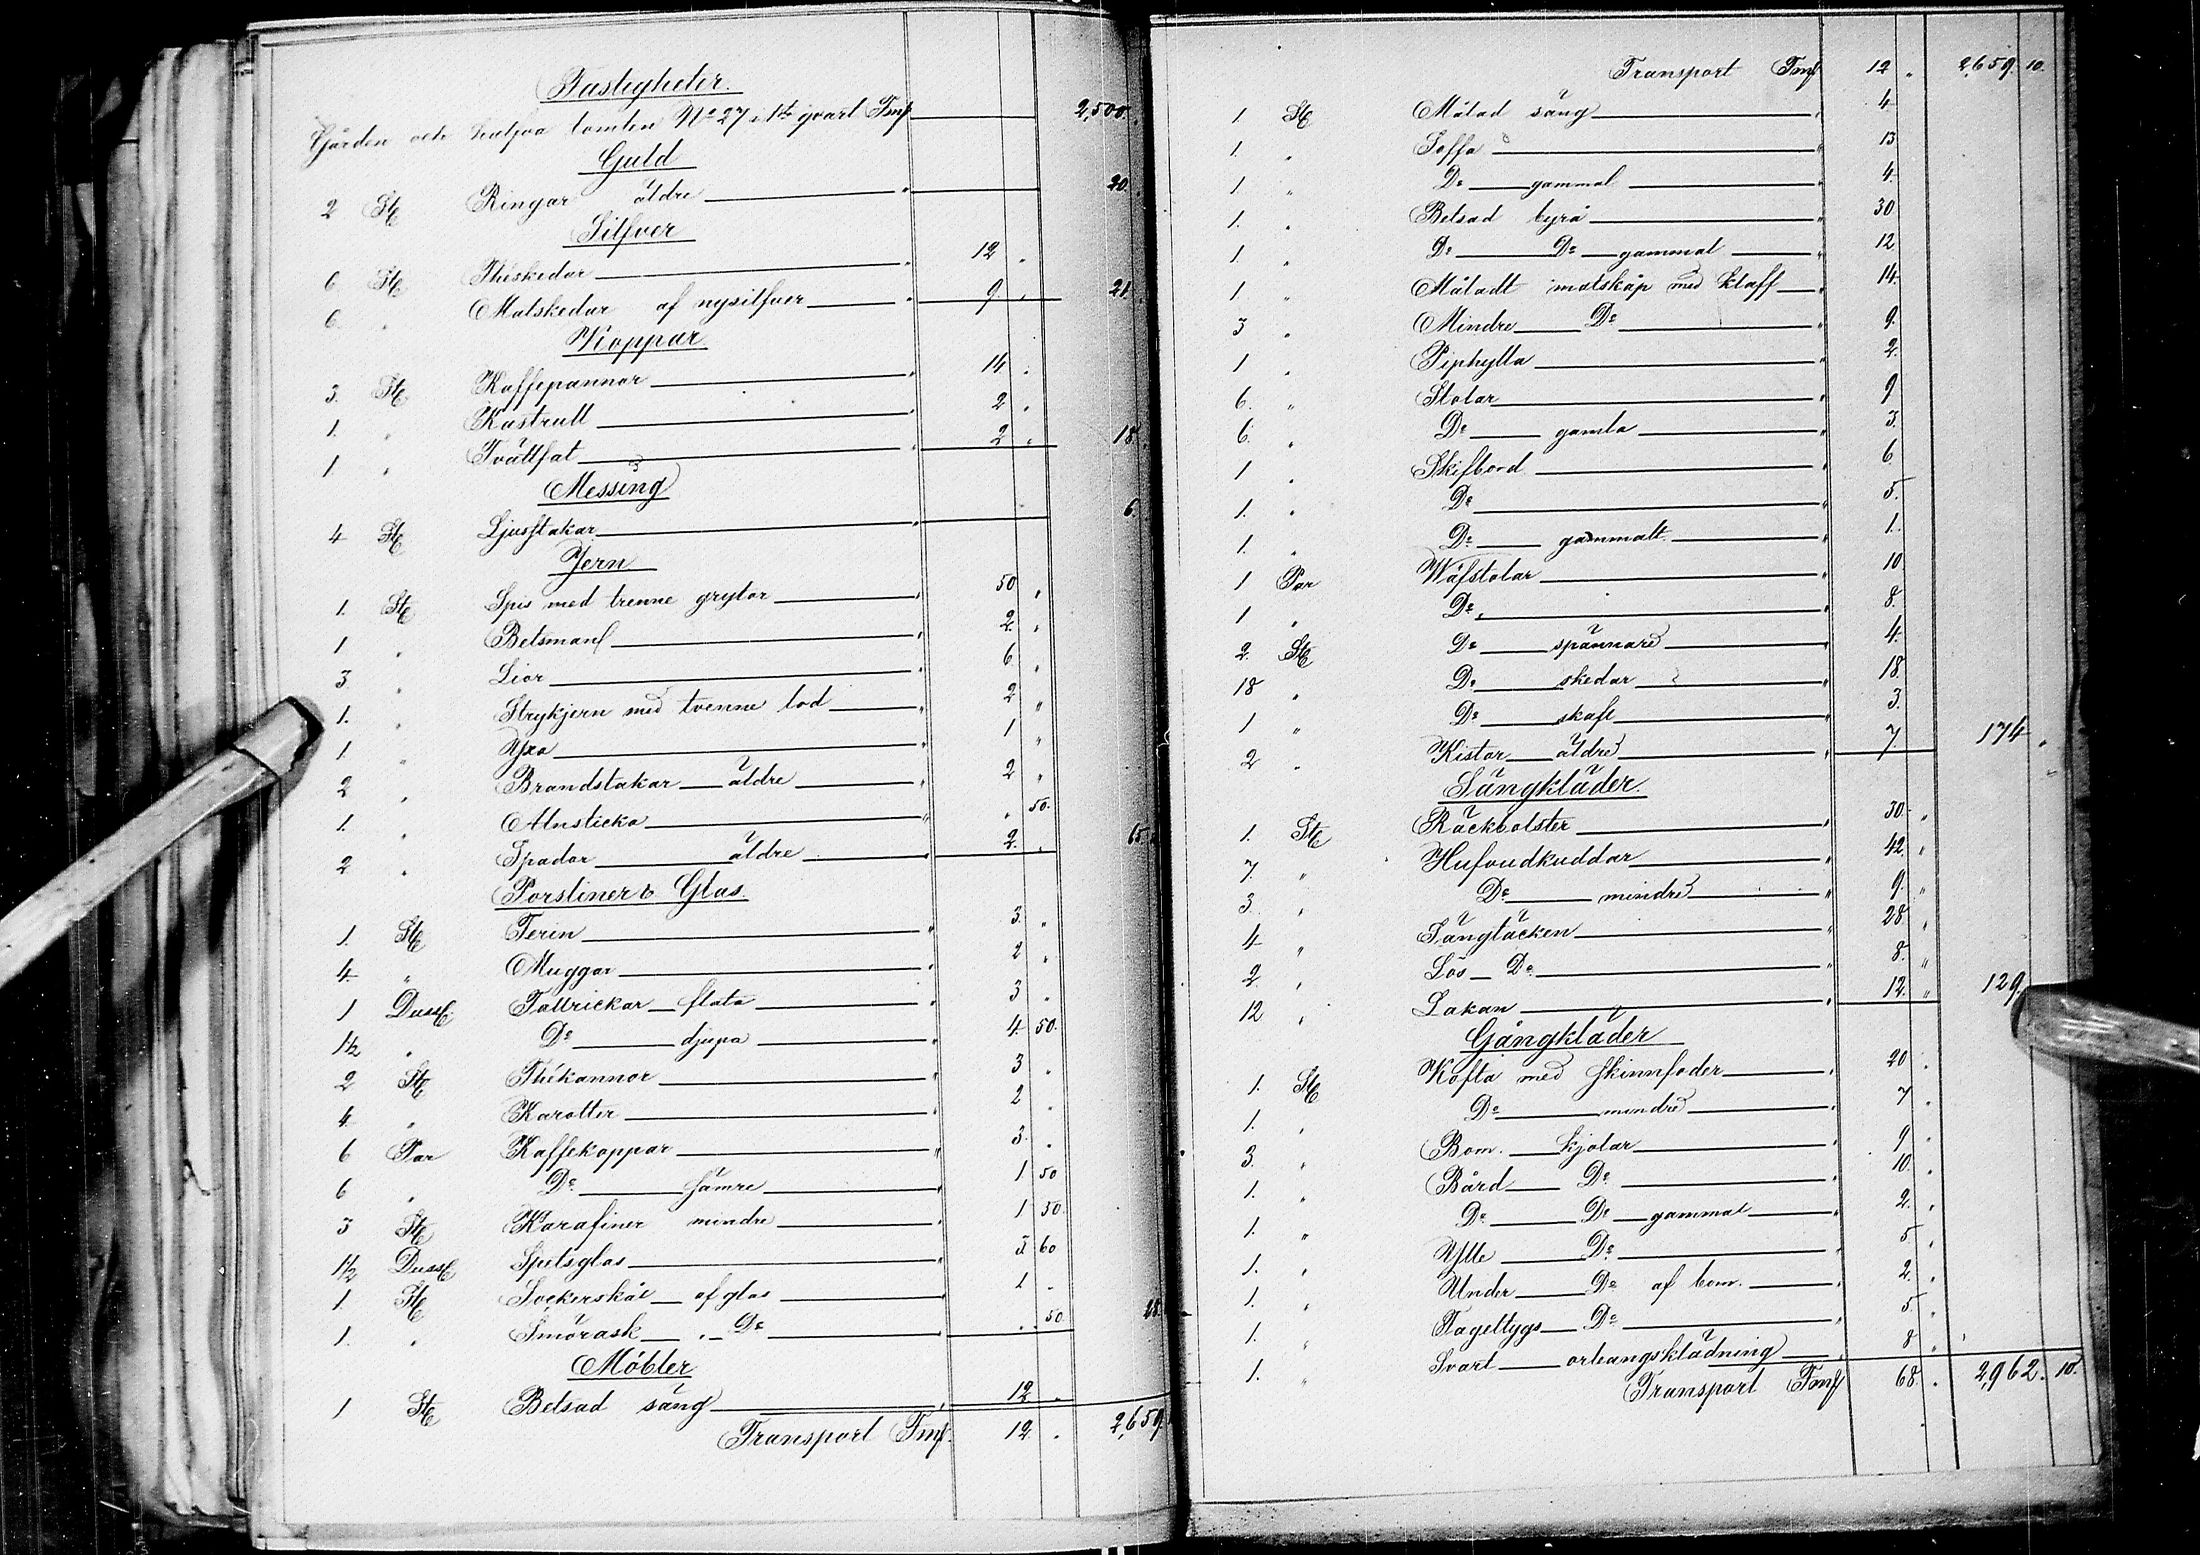 Fastigheter.
Gården och halfva tomten No 27 i 1sta qvart Fmf 2,500.
Guld
2 St Ringar äldre " 20.
Silfver
6 St Théskedar " 12 "
6. " Matskedar af nysilfver " 9. " 21.
Koppar
3. St Kaffepannor " 14 "
1. " Kastrull " 2 "
1 " Tvättfat " 2 " 18.
Messing
4 St Ljusstakar " 6.
Jern
1. St Spis med trenne grytor " 50 "
1 " Betsman " 2. "
3 " Lior " 6 "
1. " Strykjern med tvenne lod " 2 "
1 " Yxa " 1 "
2 " Brandstakar äldre " 2 "
1. " Alnsticka " " 50.
2 " Spador äldre " 2. " 65.
Porsliner & Glas.
1. St Terin " 3. "
4. " Muggar " 2 "
1 Duss Tallrickar flata " 3 "
1½ " Do djupa " 4. 50.
2 St Thékannor " 3 "
4. " Karotter " 2 "
6 Par Kaffekoppar " 3. "
6 " Do sämre " 1 50
3 St Karafiner mindre " 1 50.
1½ Duss Spetsglas " 3 60
1. St Sockerskål af glas " 1 "
1. " Smörask " Do " " 50.
Möbler
1 St Betsad säng " 12 "
Transport Fmf. 12 " 2,659.
Transport Fmf 12 " 2,659. 10.
1 St Målad säng " 4
1. " Soffa " 13
1 " Do gammal " 4.
1. " Betsad byrå " 30
1 " Do Do gammal " 12
1 " Måladt matskåp med klaff " 14.
3 " Mindre Do " 9.
1 " Piphylla " 2.
6. " Stolar " 9
6. " Do gamla " 3.
1 " Skifbord " 6
1. " Do " 5.
1. " Do gammalt " 1.
1 Par Wäfstolar " 10
1 " Do " 8.
2. St Do spännare " 4.
18 " Do skedar " 18.
1 " Do skaft " 3.
2 " Kistor äldre " 7. 174 "
Sängkläder.
1. St Räckbolster " 30. "
7. " Hufvudkuddar " 42. "
3. " Do mindre " 9. "
4 " Sängtäcken " 28 "
2 " Lös Do " 8. "
12 " Lakan " 12. " 129
Gångkläder
1. St Kofta med skinnfoder " 20 "
1. " Do mindre " 7 "
3. " Bom. kjolar " 9 "
1. " Bård Do " 10. "
1. " Do Do gammal " 2. "
1. " Ylle Do " 5 "
1. " Under Do af bom. " 2. "
1. " Tageltygs Do " 5. "
1. " Svart orleangsklädning " 8 "
Transport Fmf 68. " 2,962. 10.